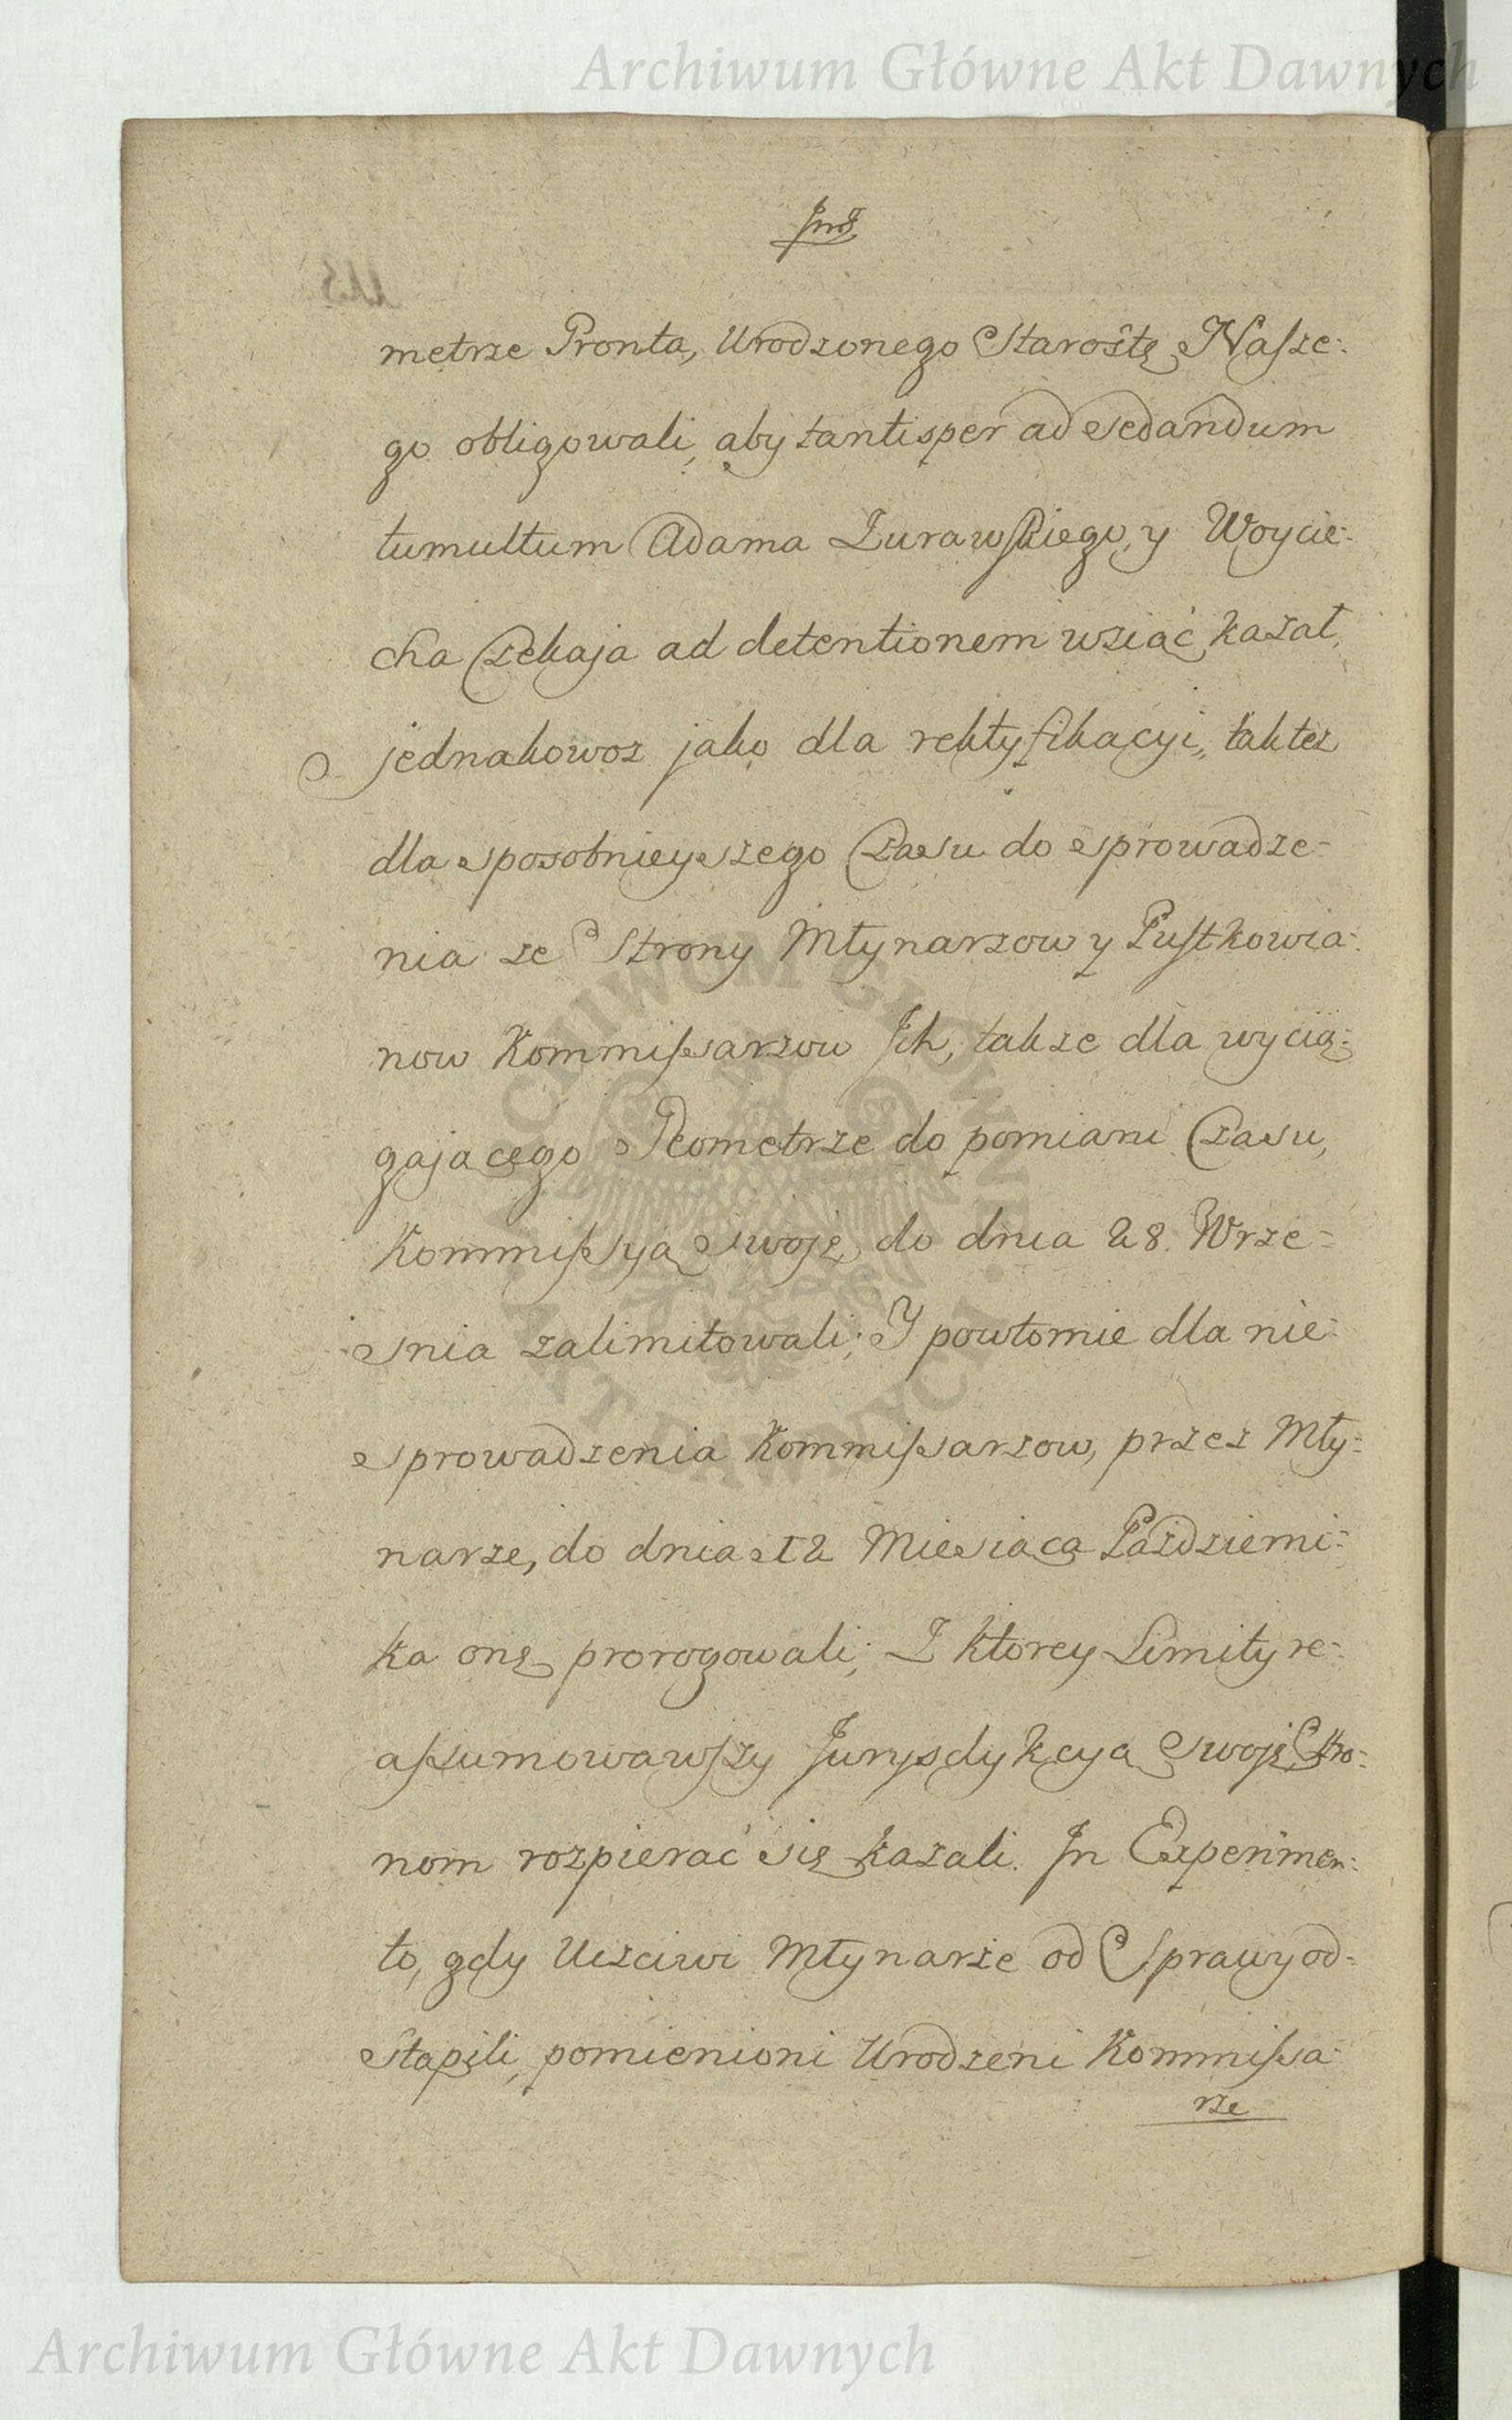 Archiwum Główne Akt Dawnych
metrze Pronta, Urodzonego Starostę Nasze:
go obligowali, aby tantisper ad sedandum
tumultum Adama Zurawskiego, y Woycie:
cha Czekaja ad detentionem wziąć kazał,
jednakowoz jako dla rektyfikacyi, taktez
dla sposobnieyszego Czasu do sprowadze:
nia ze Strony Młynarzow y Pustkowia:
now Kommissarzow Jch, takze dla wycią:
gającego Jeometrze do pomiaru Czasu,
Kommissyą swoję do dnia 28. Wrze:
snia zalimitowali; Y powtornie dla nie:
sprowadzenia Kommissarzow, przez Mły:
narze, do dnia 12 Miesiąca Pazdzierni:
ka onę prorogowali; Z ktorey Limity re:
assumowawszy Jurysdykcyą swoję Stro:
nom rozpierać się kazali. Jn Experimen:
to, gdy Uczciwi Młynarze od Sprawy od:
stąpili, pomienioni Urodzeni Kommissa:
rze
ARCHIWUM GŁÓWNE AKT DAWNYCH
Archiwum Główne Akt Dawnych